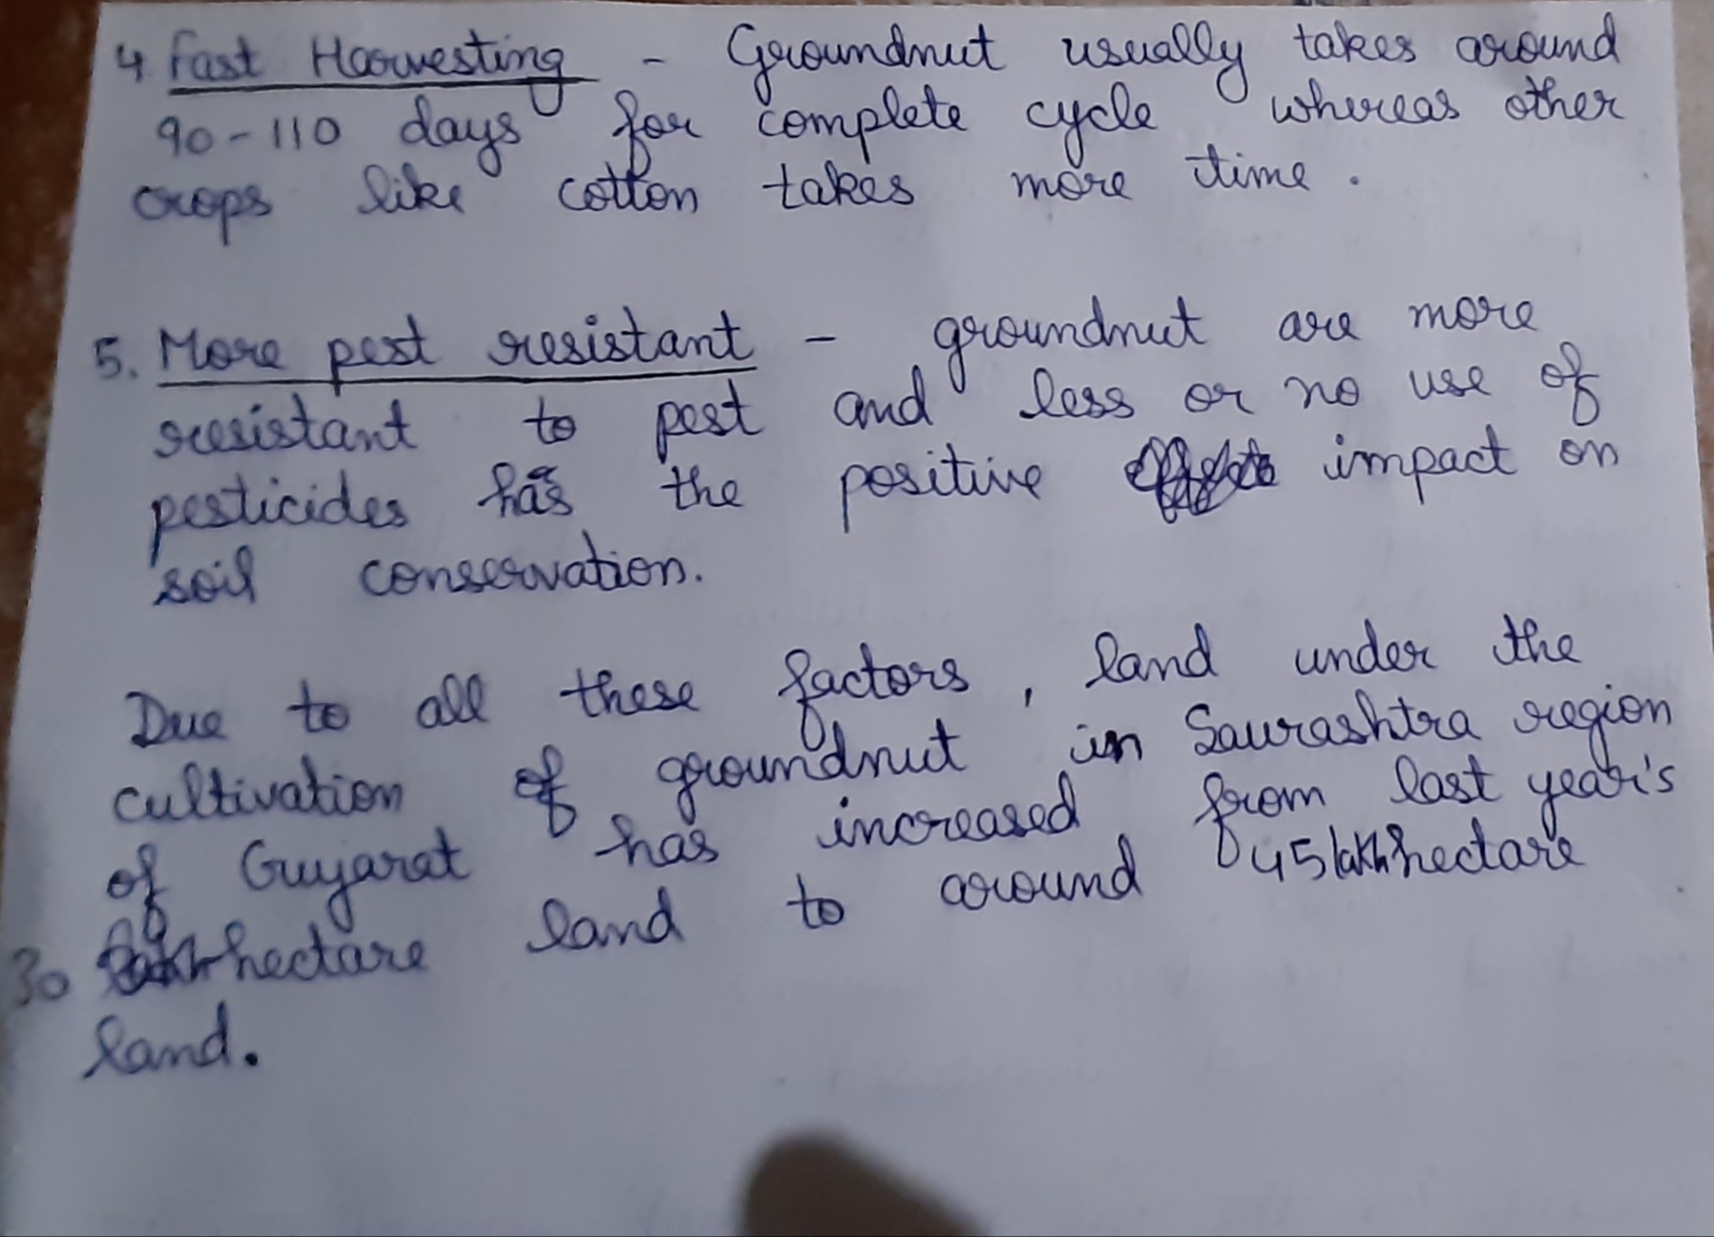 4 Fast Harvesting - Groundnut usually takes around
90-110 days for complete cycle whereas other
crops like cotton takes more time.
5. More pest resistant - groundnut are more
resistant to pest and less or no use of
pesticides has the positive impact on
soil conservation.
Due to all these factors, land under the
cultivation of groundnut in Saurashtra region
of Gujarat has increased from last year's
30 lakh hectare land to around 45 lakh hectare
land.